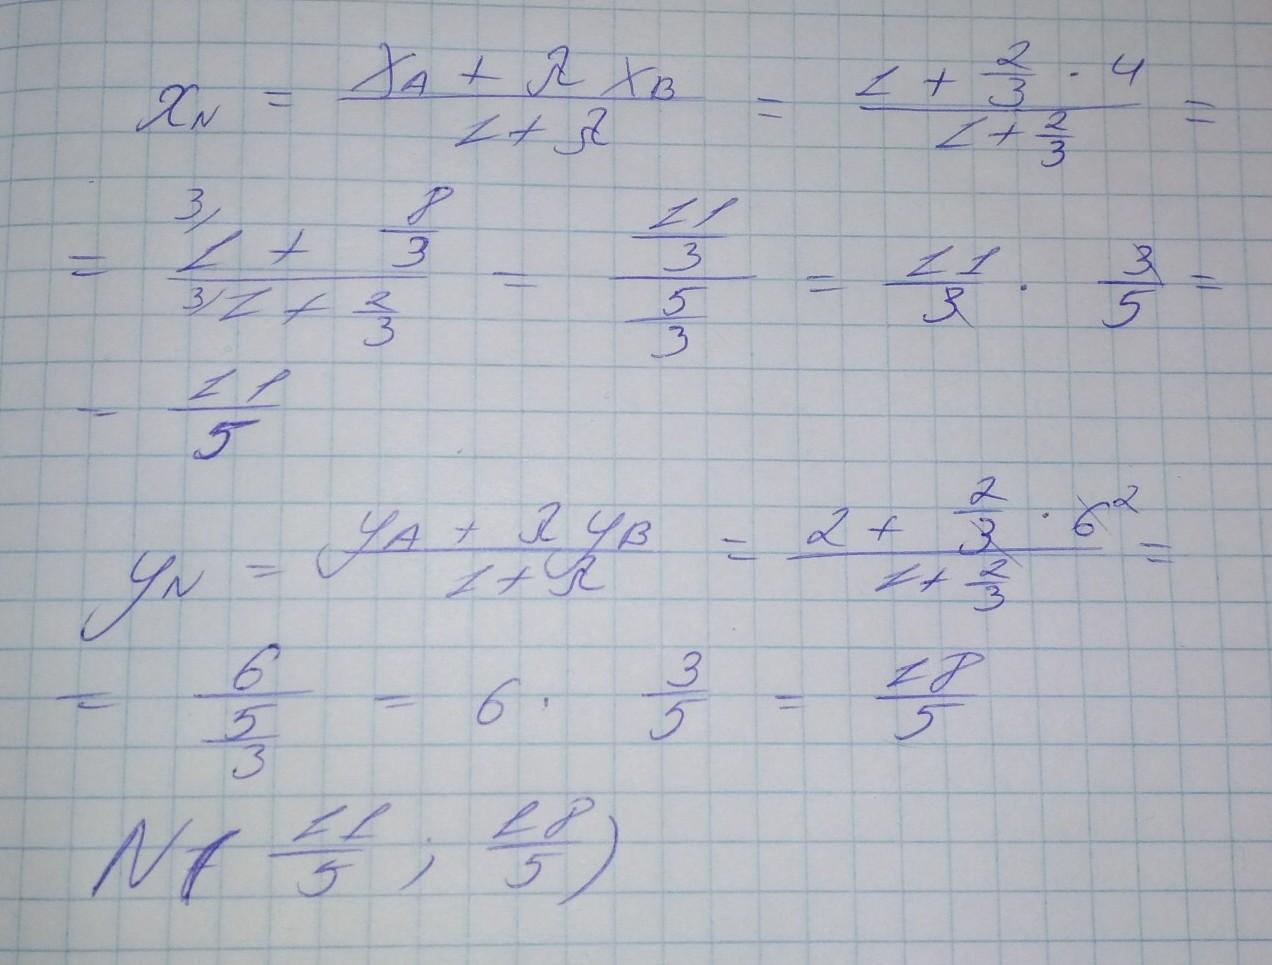 x_N = (x_A + λ x_B)/(1 + λ) = (1 + 2/3 · 4)/(1 + 2/3) =
= (3/ 1 + 8/3)/(3/ 1 + 2/3) = (11/3)/(5/3) = 11/3 · 3/5 =
= 11/5
y_N = (y_A + λ y_B)/(1 + λ) = (2 + 2/3 · 6 ²)/(1 + 2/3) =
= 6/(5/3) = 6 · 3/5 = 18/5
N(11/5 ; 18/5)